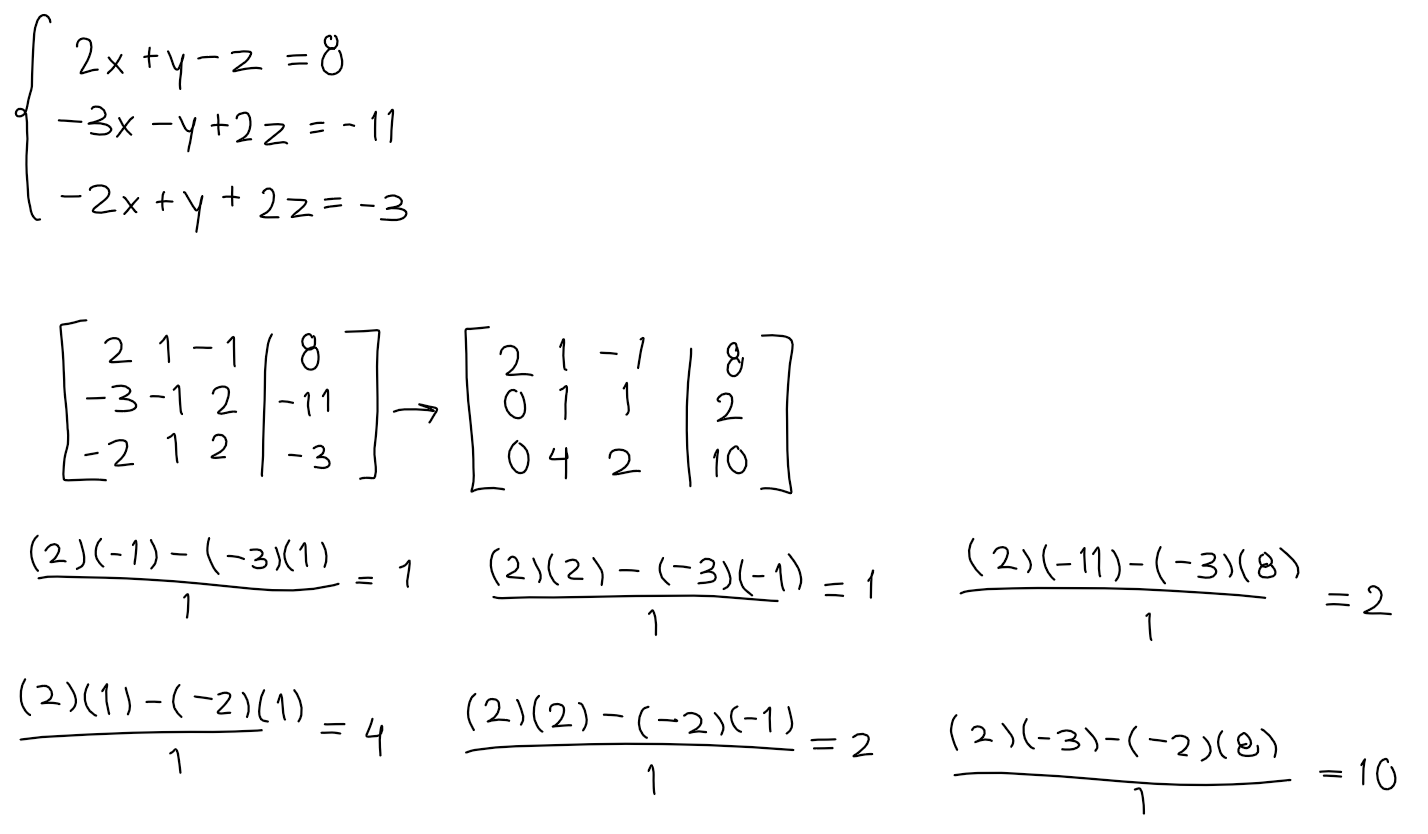 2x + y - z = 8
-3x - y + 2z = -11
-2x + y + 2z = -3
[ 2 1 -1 | 8 ] → [ 2 1 -1 | 8 ]
[ -3 -1 2 | -11 ] [ 0 1 1 | 2 ]
[ -2 1 2 | -3 ] [ 0 4 2 | 10 ]
(2)(-1) - (-3)(1) / 1 = 1 (2)(2) - (-3)(-1) / 1 = 1 (2)(-11) - (-3)(8) / 1 = 2
(2)(1) - (-2)(1) / 1 = 4 (2)(2) - (-2)(-1) / 1 = 2 (2)(-3) - (-2)(8) / 1 = 10